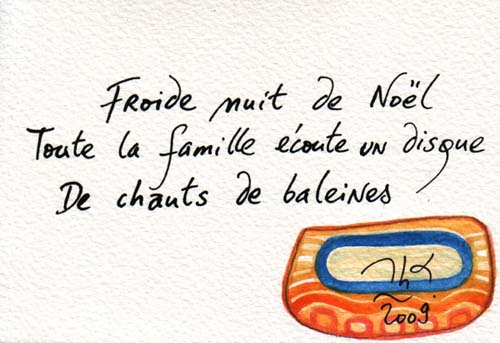 Froide nuit de Noël
Toute la famille écoute un disque
De chants de baleines
2009